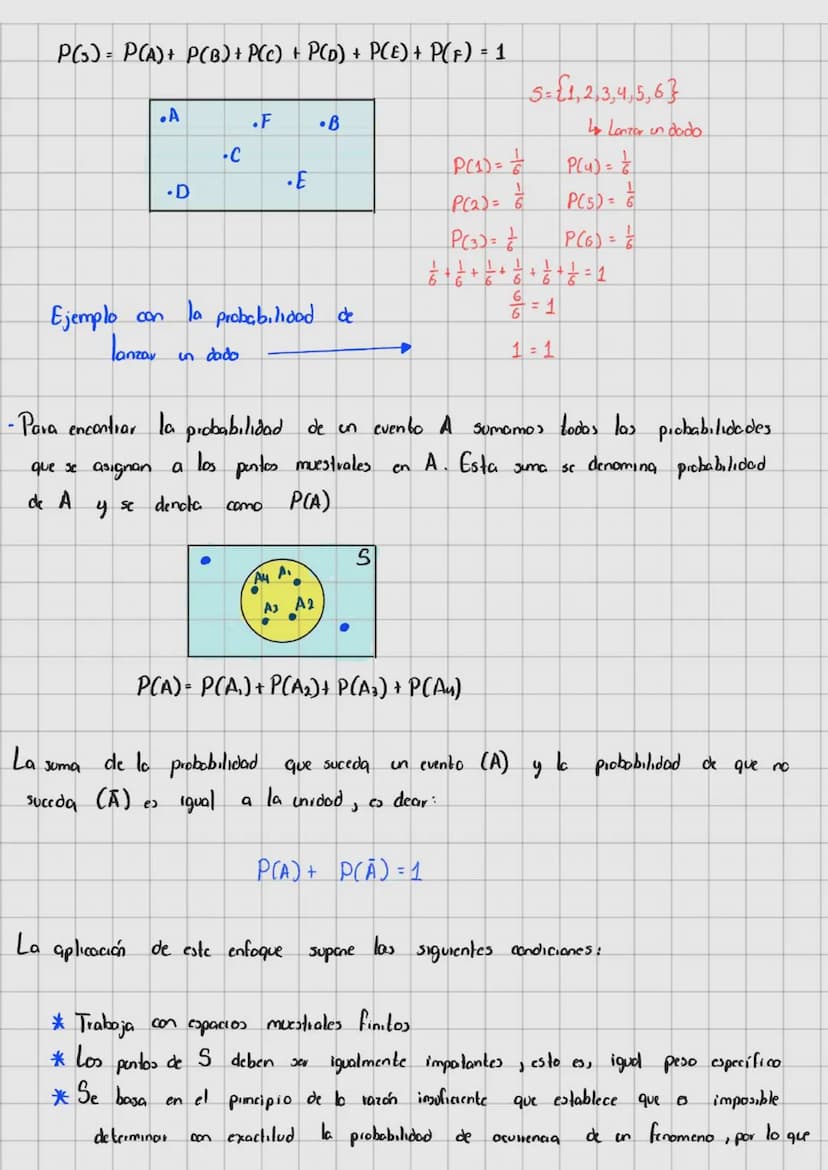 P(S) = P(A) + P(B) + P(C) + P(D) + P(E) + P(F) = 1
S = {1, 2, 3, 4, 5, 6}
↳ Lanzar un dado
.A .F .B
.C
.D .E
P(1) = 1/6 P(4) = 1/6
P(2) = 1/6 P(5) = 1/6
P(3) = 1/6 P(6) = 1/6
1/6 + 1/6 + 1/6 + 1/6 + 1/6 + 1/6 = 1
6/6 = 1
1 = 1
Ejemplo con la probabilidad de
lanzar un dado →
- Para encontrar la probabilidad de un evento A sumamos todas las probabilidades
que se asignan a los puntos muestrales en A. Esta suma se denomina probabilidad
de A y se denota como P(A)
S
A4 A1
A3 A2
P(A) = P(A1) + P(A2) + P(A3) + P(A4)
La suma de la probabilidad que suceda un evento (A) y la probabilidad de que no
suceda (Ā) es igual a la unidad, es decir:
P(A) + P(Ā) = 1
La aplicación de este enfoque supone las siguientes condiciones:
* Trabaja con espacios muestrales finitos
* Los puntos de S deben ser igualmente importantes, esto es, igual peso específico
* Se basa en el principio de la razón insuficiente que establece que es imposible
determinar con exactitud la probabilidad de ocurrencia de un fenomeno, por lo que